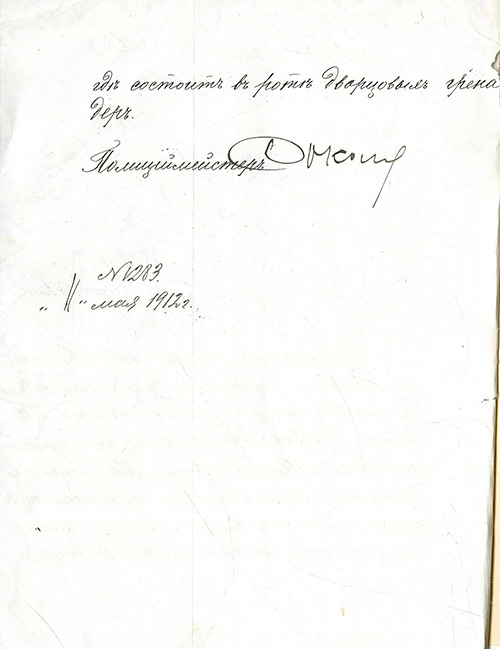 гдѣ состоитъ въ ротѣ дворцовымъ грена
деръ.
Полиціймейстеръ
№ 1283.
„ 11 “ мая 1912 г.